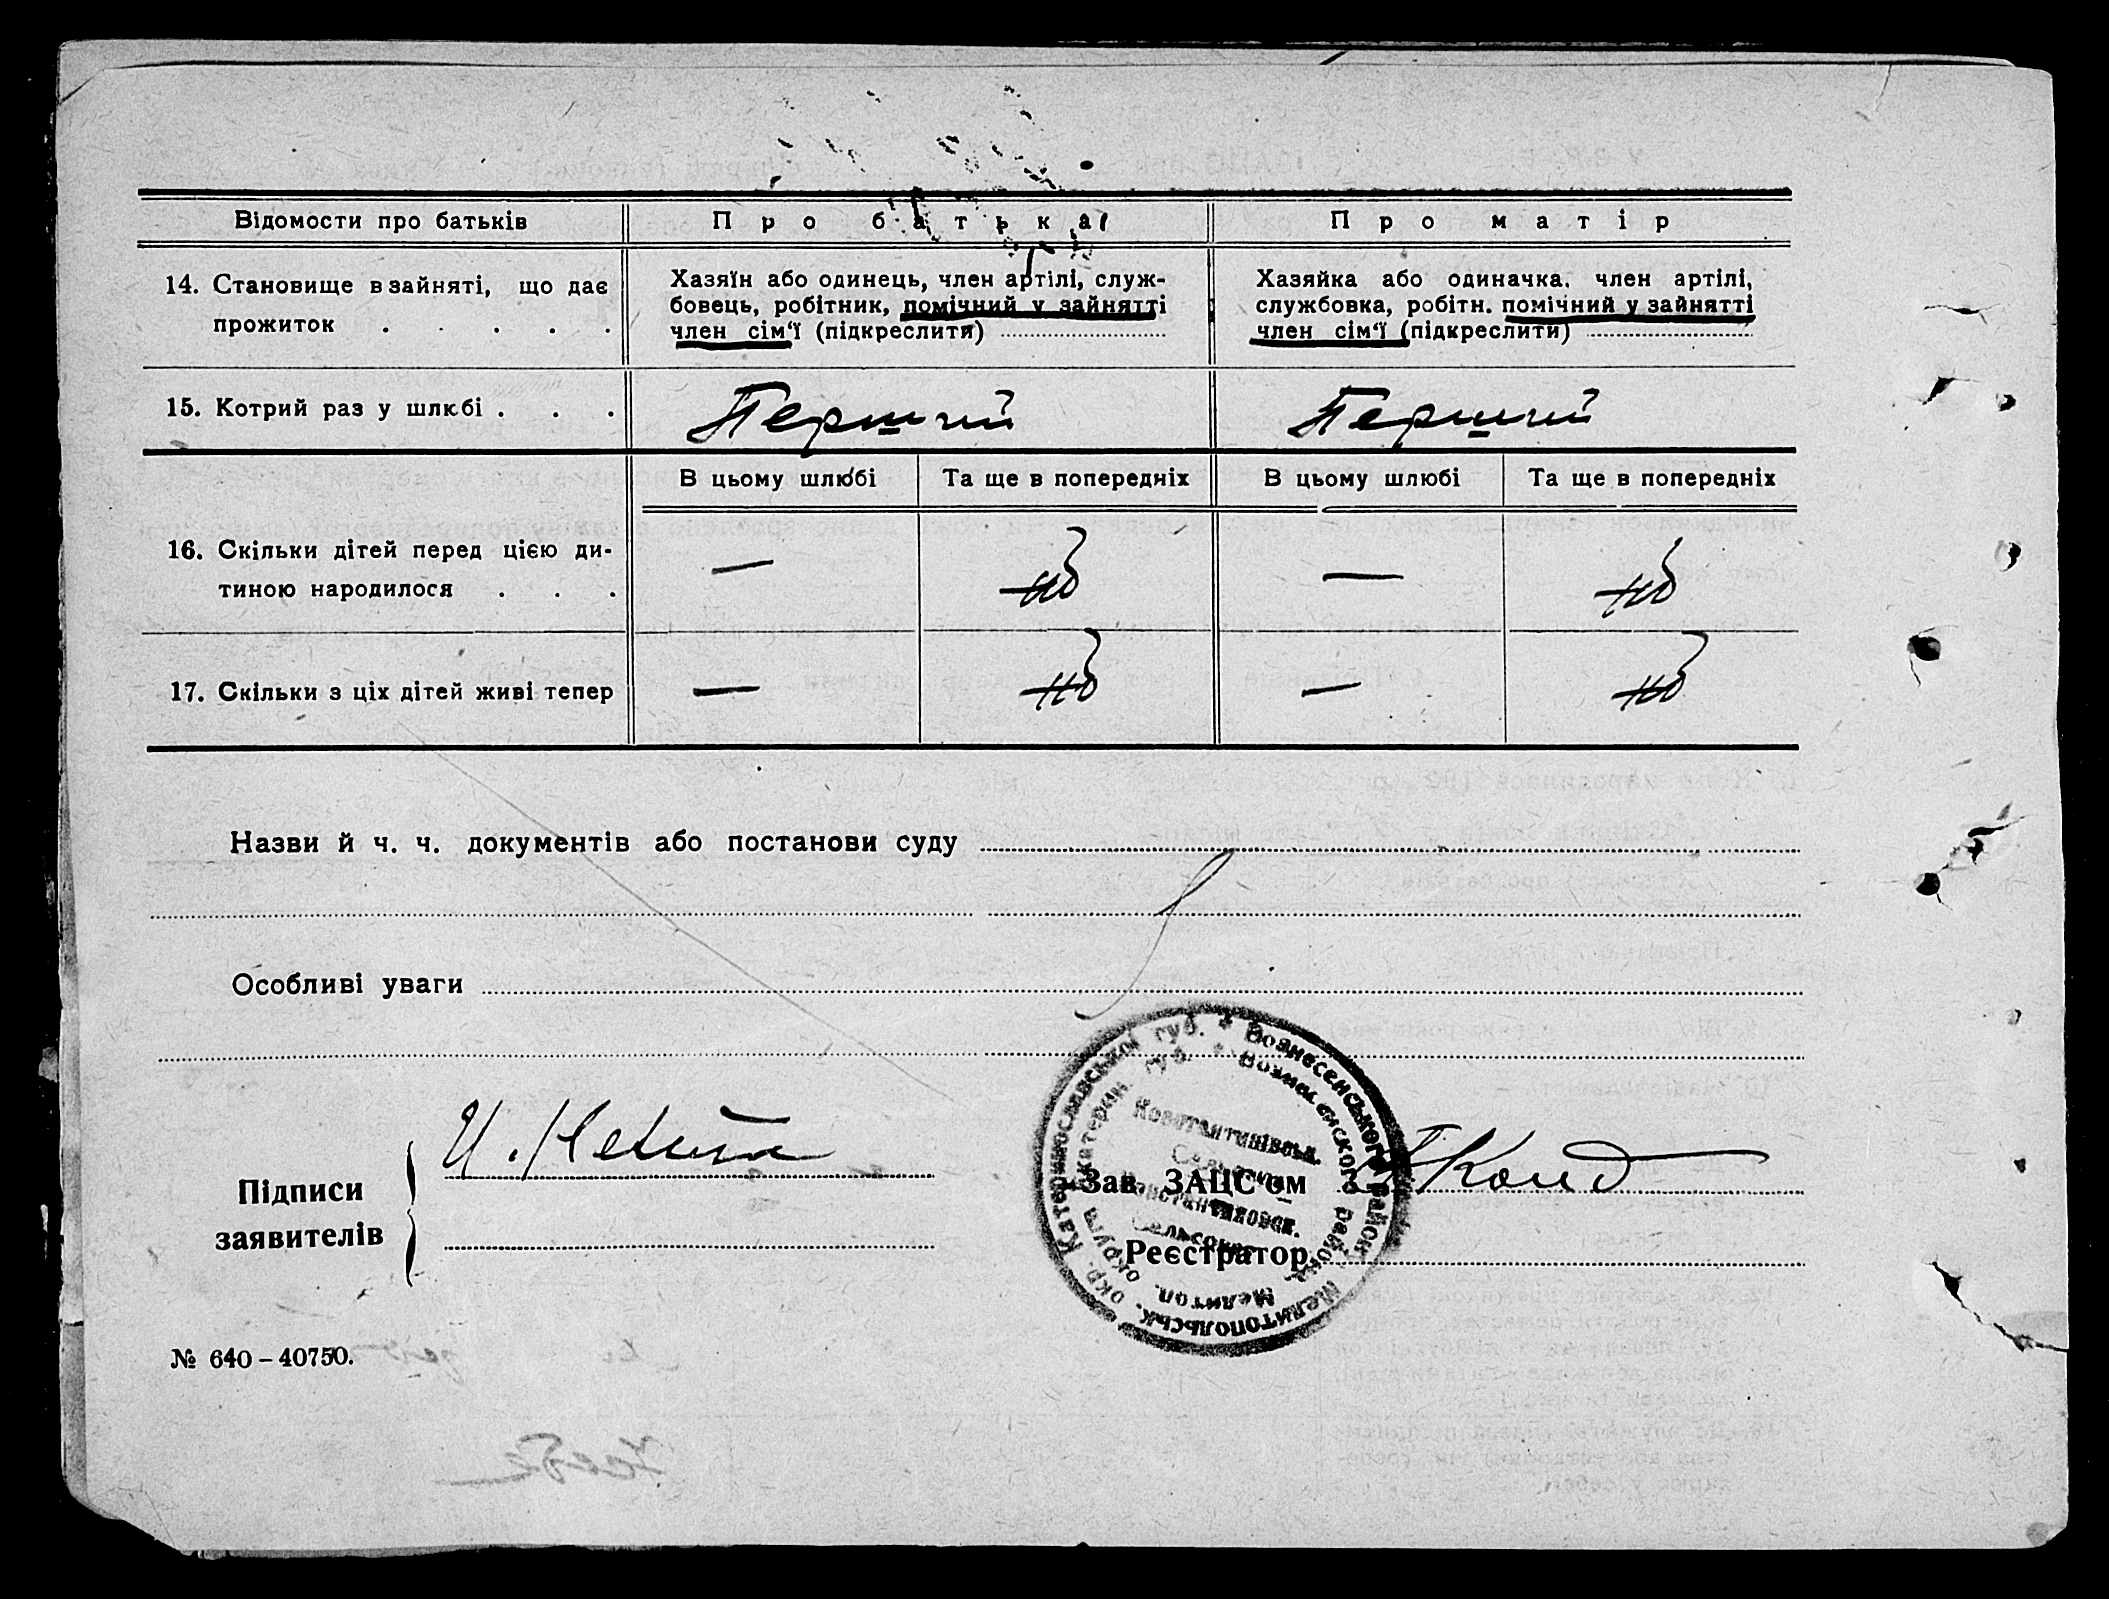 Відомости про батьків Про батька Про матір
14. Становище в зайняті, що дає прожиток . . . . .
Хазяїн або одинець, член артілі, служ-
бовець, робітник, помічний у зайнятті
член сім'ї (підкреслити)
Хазяйка або одиначка, член артілі,
службовка, робітн. помічний у зайнятті
член сім'ї (підкреслити)
15. Котрий раз у шлюбі . . . Перший Перший
В цьому шлюбі Та ще в попередніх В цьому шлюбі Та ще в попередніх
16. Скільки дітей перед цією ди-
тиною народилося . . .
— —
17. Скільки з ціх дітей живі тепер — —
Назви й ч. ч. документів або постанови суду
Особливі уваги
Підписи
заявителів
Катеринославської губ. * Вознесенського район. Мелитопольськ. окр.
Катерин. губ. * Вознесенского района Мелитоп. округа
Зав. ЗАЦС'ом
Реєстратор
№ 640 – 40750.